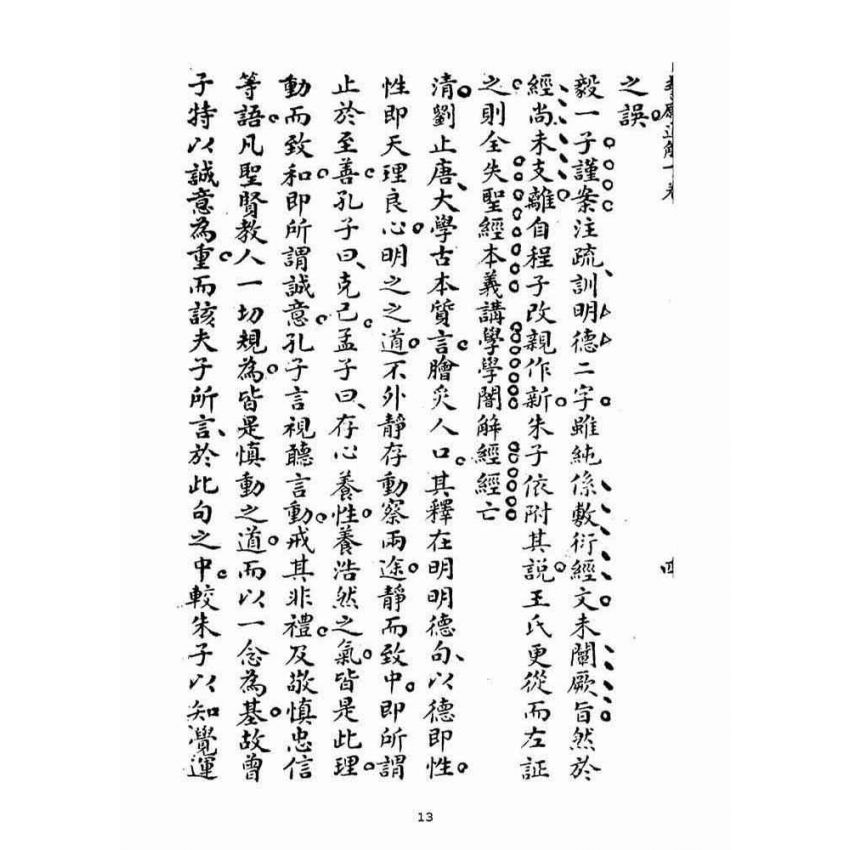 之誤
毅一子謹案注疏訓明德二字雖純係敷衍經文未闡厥旨然於
經尚未支離自程子改親作新朱子依附其說王氏更從而左証
之則全失聖經本義講學學闇解經經亡
清劉止唐大學古本質言膾炙人口其釋在明明德句以德即性
性即天理良心明之之道不外靜存動察兩途靜而致中即所謂
止於至善孔子曰克己孟子曰存心養性養浩然之氣皆是此理
動而致和即所謂誠意孔子言視聽言動戒其非禮及敬慎忠信
等語凡聖賢教人一切規為皆是慎動之道而以一念為基故曾
子特以誠意為重而該夫子所言於此句之中較朱子以知覺運
13